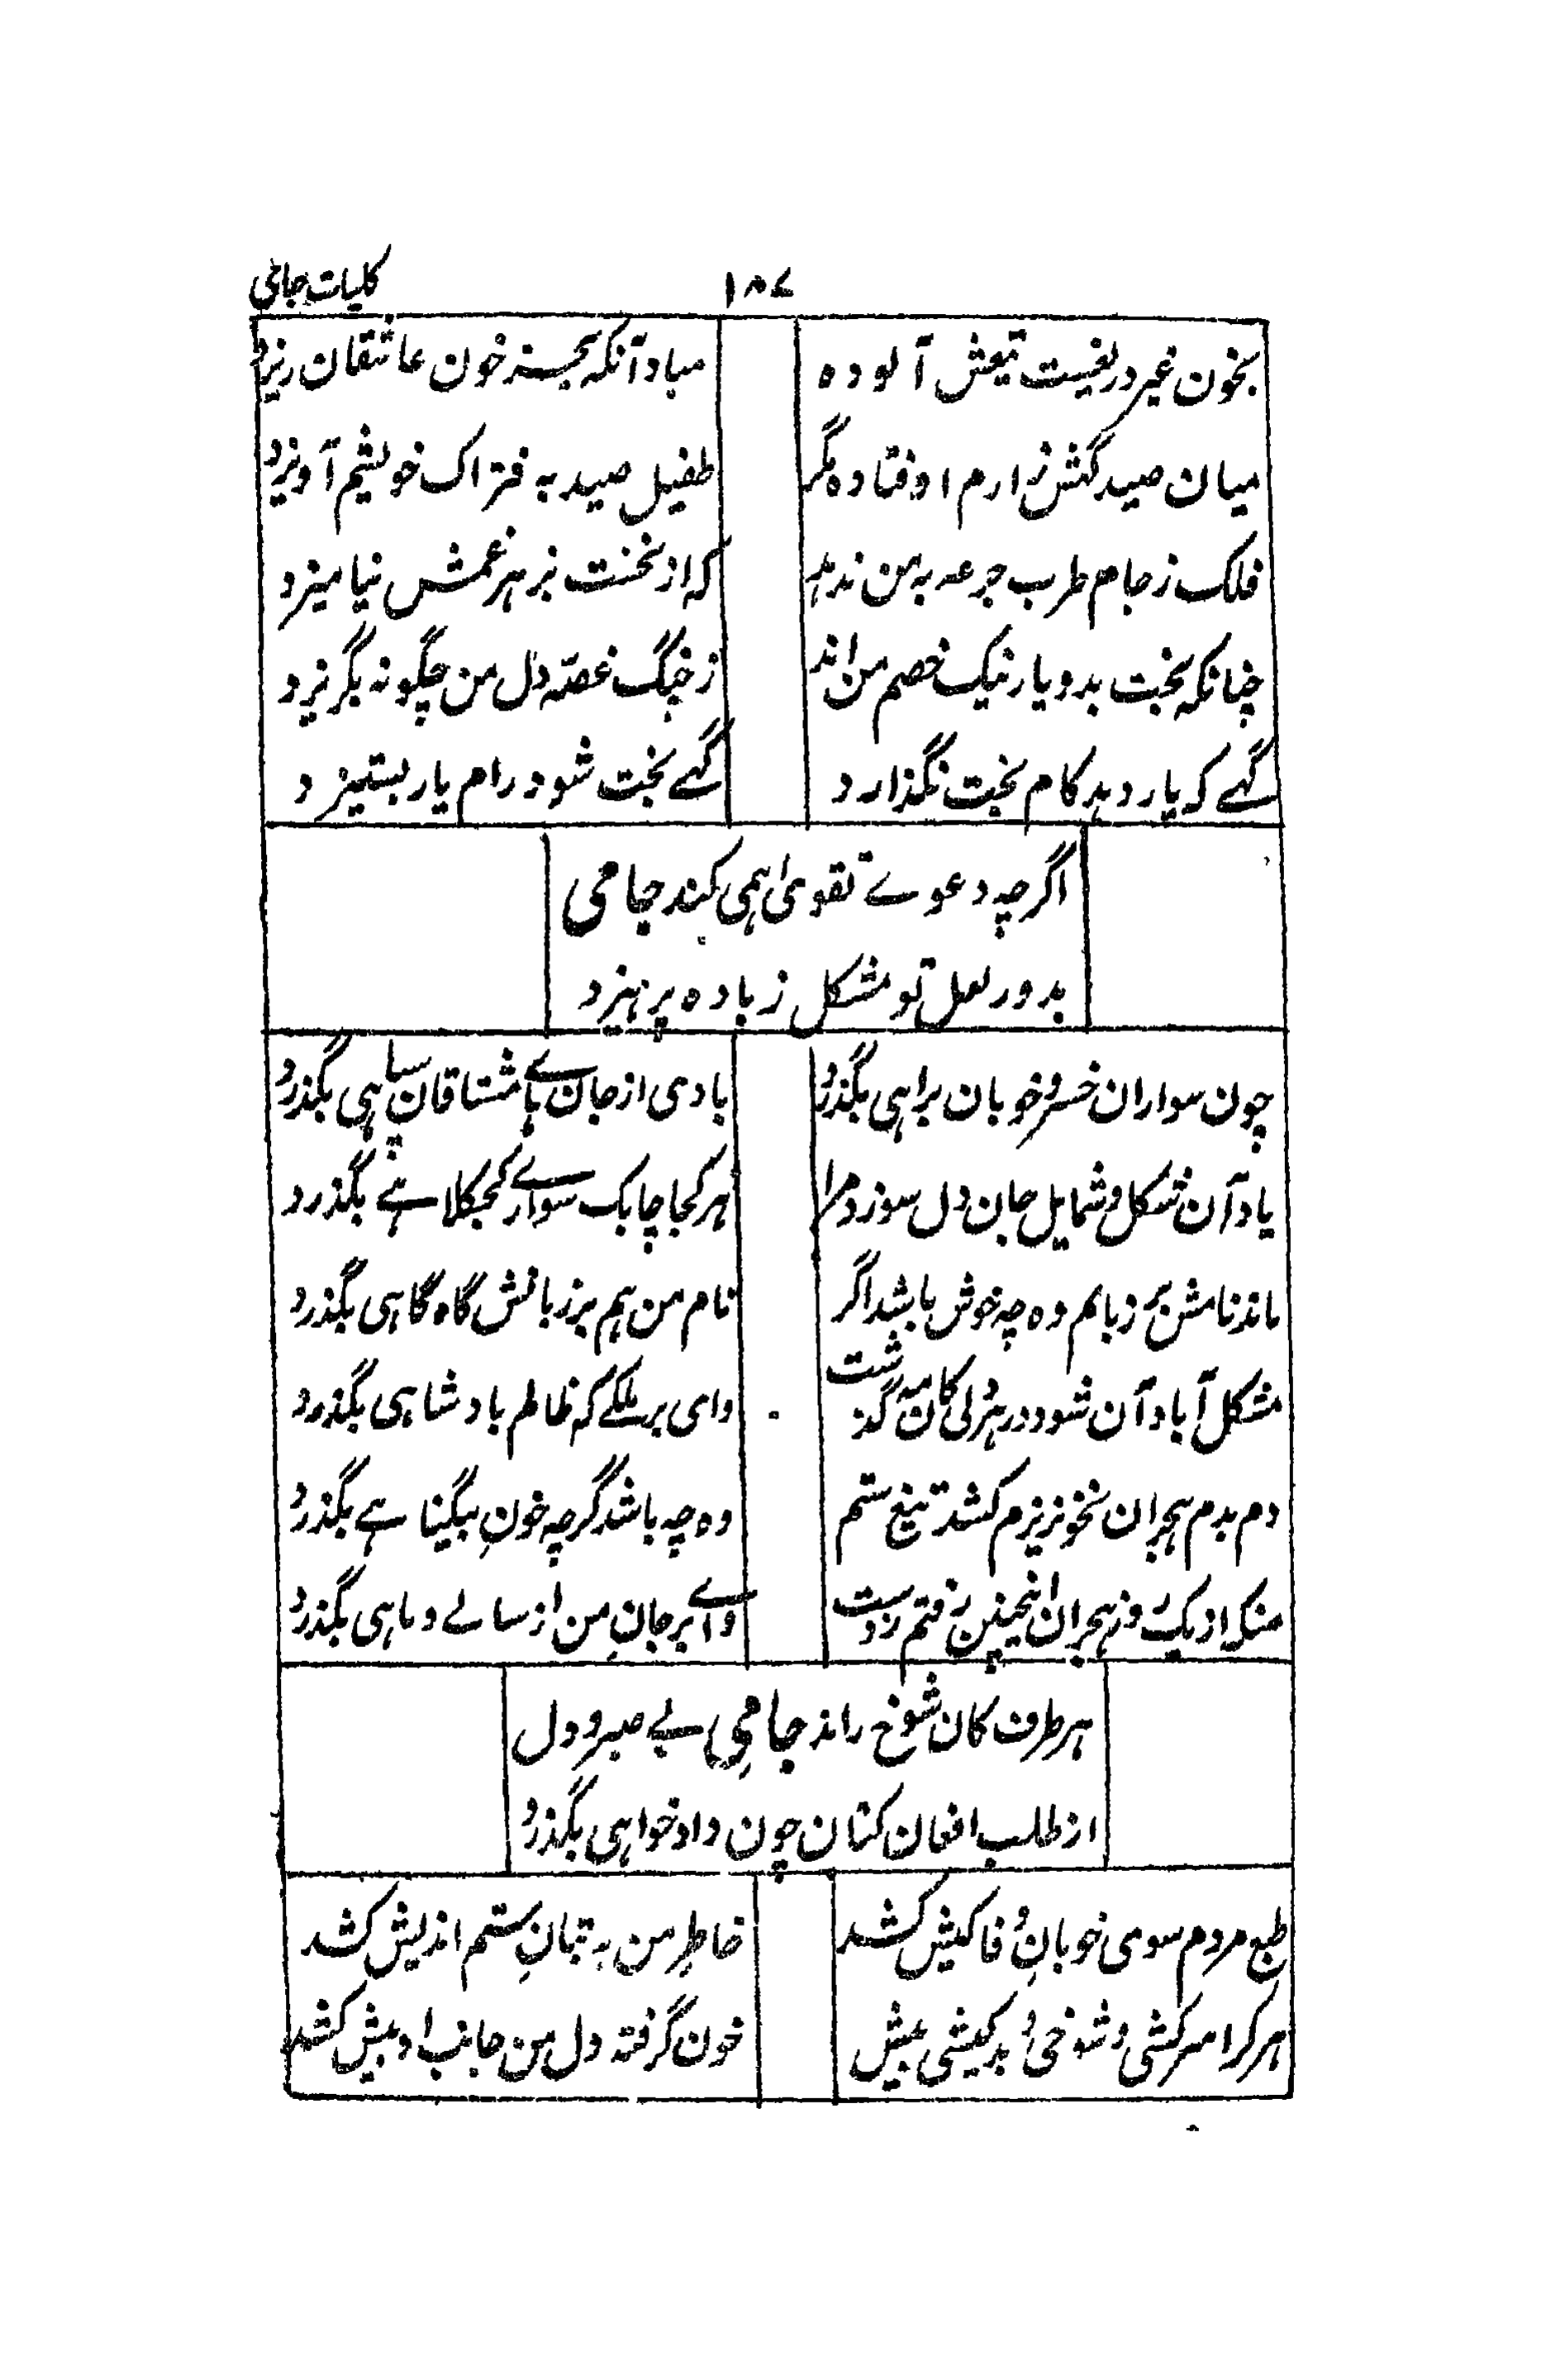 کلیات جامی
۱۸۷
بخون غیر دریغست تیغش آلوده
مباد آنکه بجسته خون عاشقان ریزد
میان صید گهش زارم اوفتاده مگر
طفیل صید به فتراک خویشم آویزد
فلک ز جام طرب جرعه به من ندهد
که از نخست بزهر غمش نیامیزد
چنانکه بخت بد و یار نیک خصم من اند
ز جنگ غصّه دل من چگونه بگریزد
گهے که یار دهد کام بخت نگذارد
گهے بخت شود رام یار بستیزد
اگرچه دعوے تقویٰ همی کند جامی
بدور لعل تو مشکل ز باده پرهیزد
چون سواران خسرو خوبان براهی بگذرد
بادی از جان هاے مشتاقان سپاهی بگذرد
یاد آن شکل و شمایل جان و دل سوزد مرا
هر کجا چابک سوارے کجکلاهے بگذرد
ماند نامش بر زبانم وه چه خوش باشد اگر
نام من هم بر زبانش گاه گاهی بگذرد
مشکل آباد آن شود در هر دلی کان مه گذشت
وای بر ملکے که ظالم بادشاهی بگذرد
دم بدم هجران بخونریزم کشد تیغ ستم
وه چه باشد گرچه خونِ بیگناهے بگذرد
منکه از یک روز هجران اینچنین رفتم ز دست
واے بر جانِ من از سالے و ماهی بگذرد
هر طرف کان شوخ راند جامیِ بے صبر و دل
از طلب افغان کنان چون دادخواهی بگذرد
طبع مردم سوی خوبانِ وفا کیش کشد
خاطرِ من به بتانِ ستم اندیش کشد
هر کرا سرکشی و شوخی و بدکیشی بیش
خون گرفته دل من جانب او بیش کشد